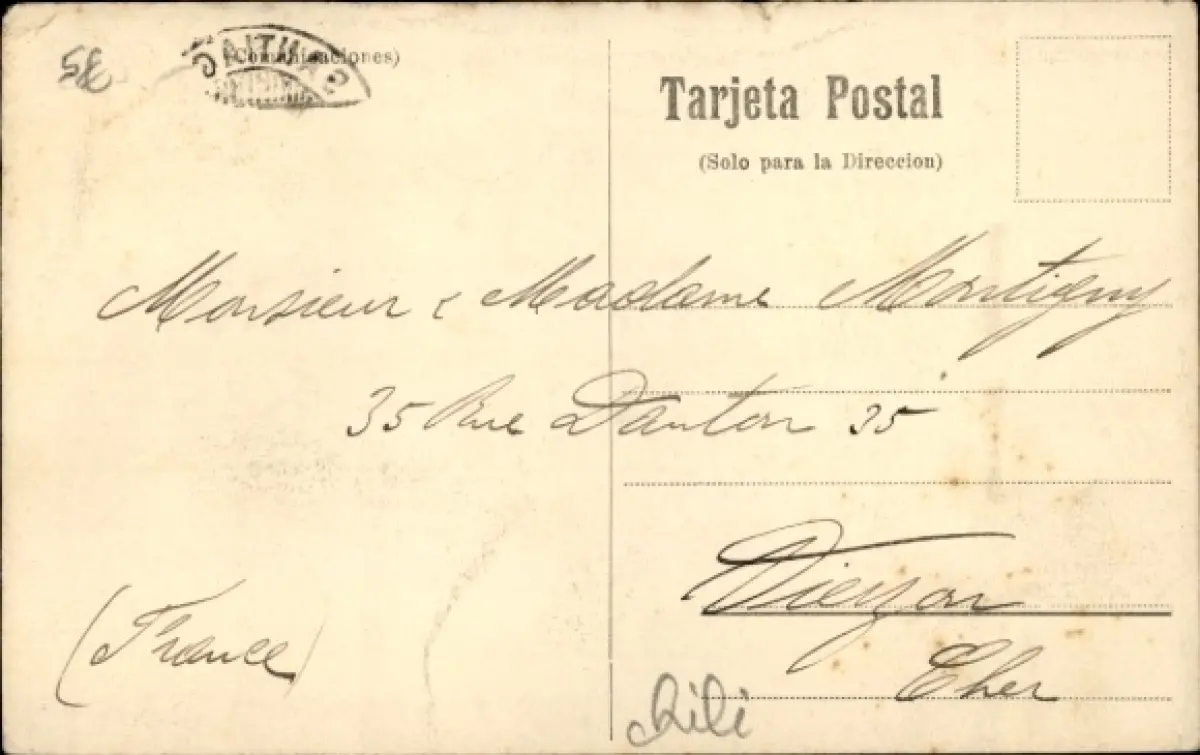 (Comunicaciones)
Tarjeta Postal
(Solo para la Direccion)
Monsieur & Madame Montigny
35 Rue Danton 35
Vierzon
Cher
(France)
Chili